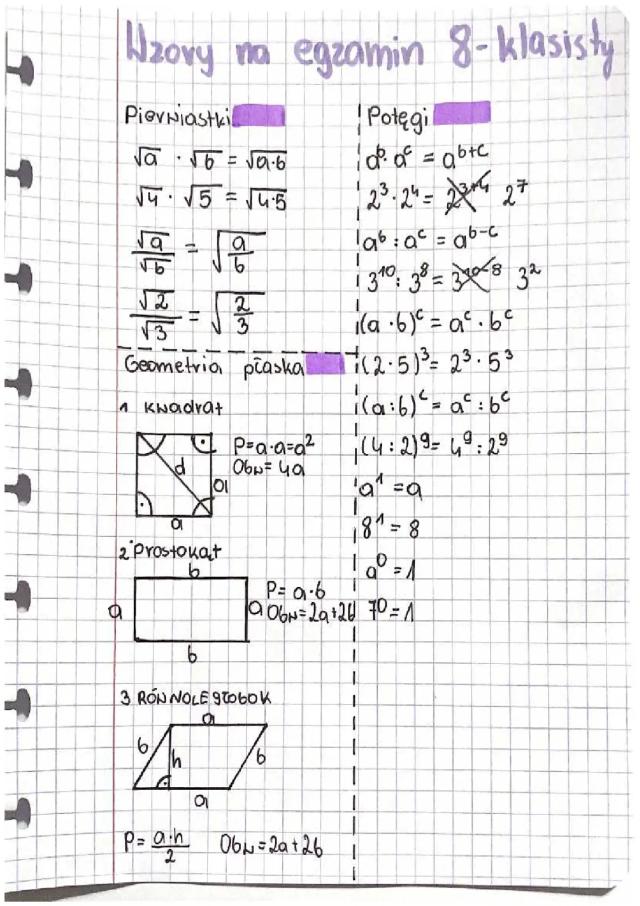 Wzory na egzamin 8-klasisty
Pierwiastki
√a · √b = √a·b
√4 · √5 = √4·5
√a/√b = √a/b
√2/√3 = √2/3
Geometria płaska
1 kwadrat
d
a
a
P=a·a=a²
Obw=4a
2 Prostokąt
b
a
a
b
P= a·b
Obw=2a+2b
3 RÓWNOLEGŁOBOK
a
b
h
b
a
P= a·h/2 Obw=2a+2b
Potęgi
aᵇ·aᶜ = aᵇ⁺ᶜ
2³·2⁴= 2³⁺⁴ 2⁷
aᵇ:aᶜ = aᵇ⁻ᶜ
3¹⁰:3⁸ = 3¹⁰⁻⁸ 3²
(a·b)ᶜ = aᶜ·bᶜ
(2·5)³= 2³·5³
(a:b)ᶜ = aᶜ:bᶜ
(4:2)⁹= 4⁹:2⁹
a¹ =a
8¹ = 8
a⁰ = 1
7⁰ = 1